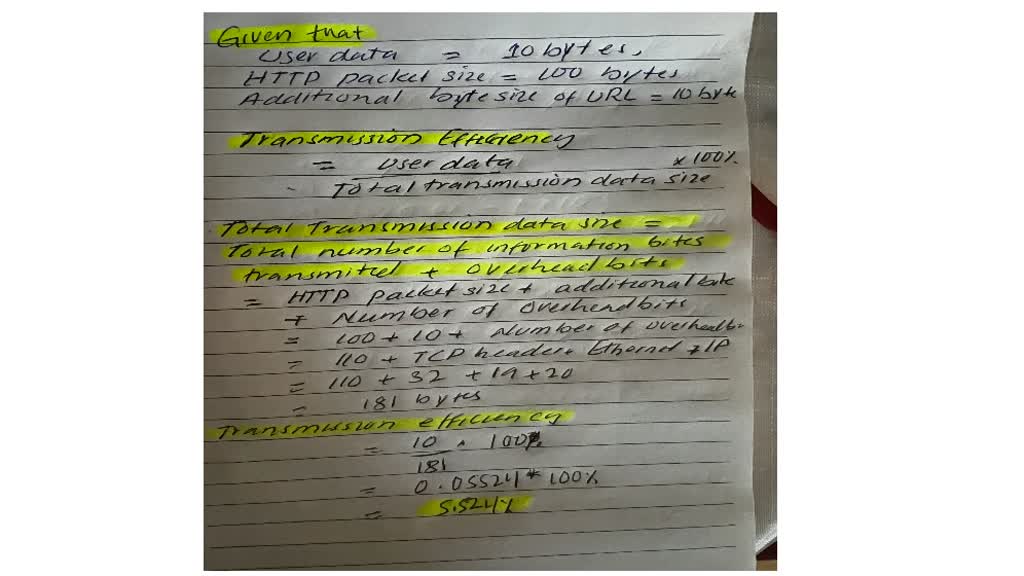 Given that
User data = 10 bytes,
HTTP packet size = 100 bytes
Additional byte size of URL = 10 byte
Transmission Efficiency
= User data × 100%
Total transmission data size
Total Transmission data size =
Total number of information bits
transmitted + overhead bits
= HTTP packet size + additional byte
+ Number of Overhead bits
= 100 + 10 + Number of overhead
= 110 + TCP header + Ethernet + IP
= 110 + 32 + 19 + 20
= 181 bytes
Transmission efficiency
= 10 * 100%
181
= 0.05524 * 100%
= 5.524%